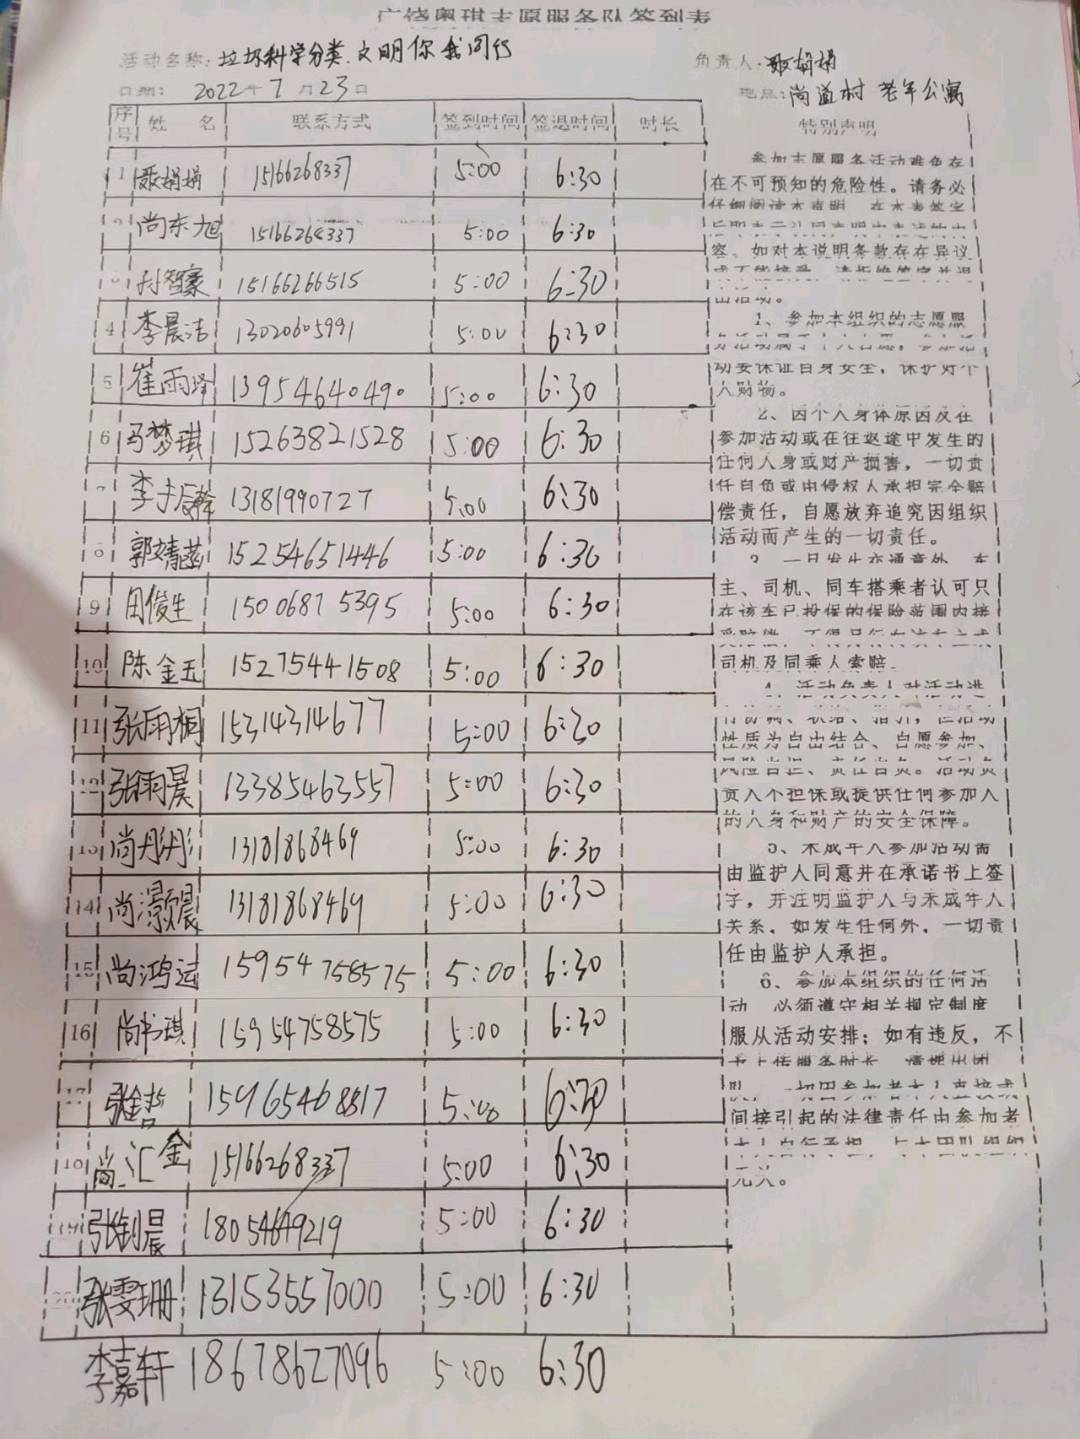 广饶奥琪志愿服务队签到表
活动名称: 垃圾科学分类.文明你我同行
负责人:
日期: 2022年7月23日
地点: 尚道村 老年公寓
序号 姓 名 联系方式 签到时间 签退时间 时长
1 15166268337 5:00 6:30
尚东旭 15166268337 5:00 6:30
孙智豪 15166266515 5:00 6:30
4 李晨洁 13020605991 5:00 6:30
5 崔雨泽 13954640490 5:00 6:30
6 马梦琪 15263821528 5:00 6:30
7 李 13181990727 5:00 6:30
8 郭婧菡 15254651446 5:00 6:30
9 田俊生 15006875395 5:00 6:30
10 陈金玉 15275441508 5:00 6:30
11 张雨桐 15314314677 5:00 6:30
12 张雨晨 13385463557 5:00 6:30
13 尚彤彤 13181868469 5:00 6:30
14 尚灏晨 13181868469 5:00 6:30
15 尚鸿运 15954758575 5:00 6:30
16 尚书琪 15954758575 5:00 6:30
17 张哲 15965468817 5:00 6:30
18 尚汇金 15166268337 5:00 6:30
19 张钊晨 18054649219 5:00 6:30
20 张雯珊 13153557000 5:00 6:30
李嘉轩 18678627096 5:00 6:30
特别声明
参加志愿服务活动难免存
在不可预知的危险性。请务必
仔细阅读本声明
容。如对本说明条款存在异议
出活动。
1、参加本组织的志愿服
动要保证自身安全，保护好个
人财物。
2、因个人身体原因及在
参加活动或在往返途中发生的
任何人身或财产损害，一切责
任自负或由侵权人承担完全赔
偿责任，自愿放弃追究因组织
活动而产生的一切责任。
3、一旦发生交通意外，车
主、司机、同车搭乘者认可只
在该车已投保的保险范围内接
司机及同乘人索赔。
4、活动负责人对活动进
行协调、联络、指引，但活动
性质为自由结合、自愿参加、
风险自担、责任自负。活动负
责人不担保或提供任何参加人
的人身和财产的安全保障。
5、未成年人参加活动需
由监护人同意并在承诺书上签
字，并注明监护人与未成年人
关系，如发生任何外，一切责
任由监护人承担。
6、参加本组织的任何活
动，必须遵守相关规定制度
服从活动安排；如有违反，不
间接引起的法律责任由参加者
无关。